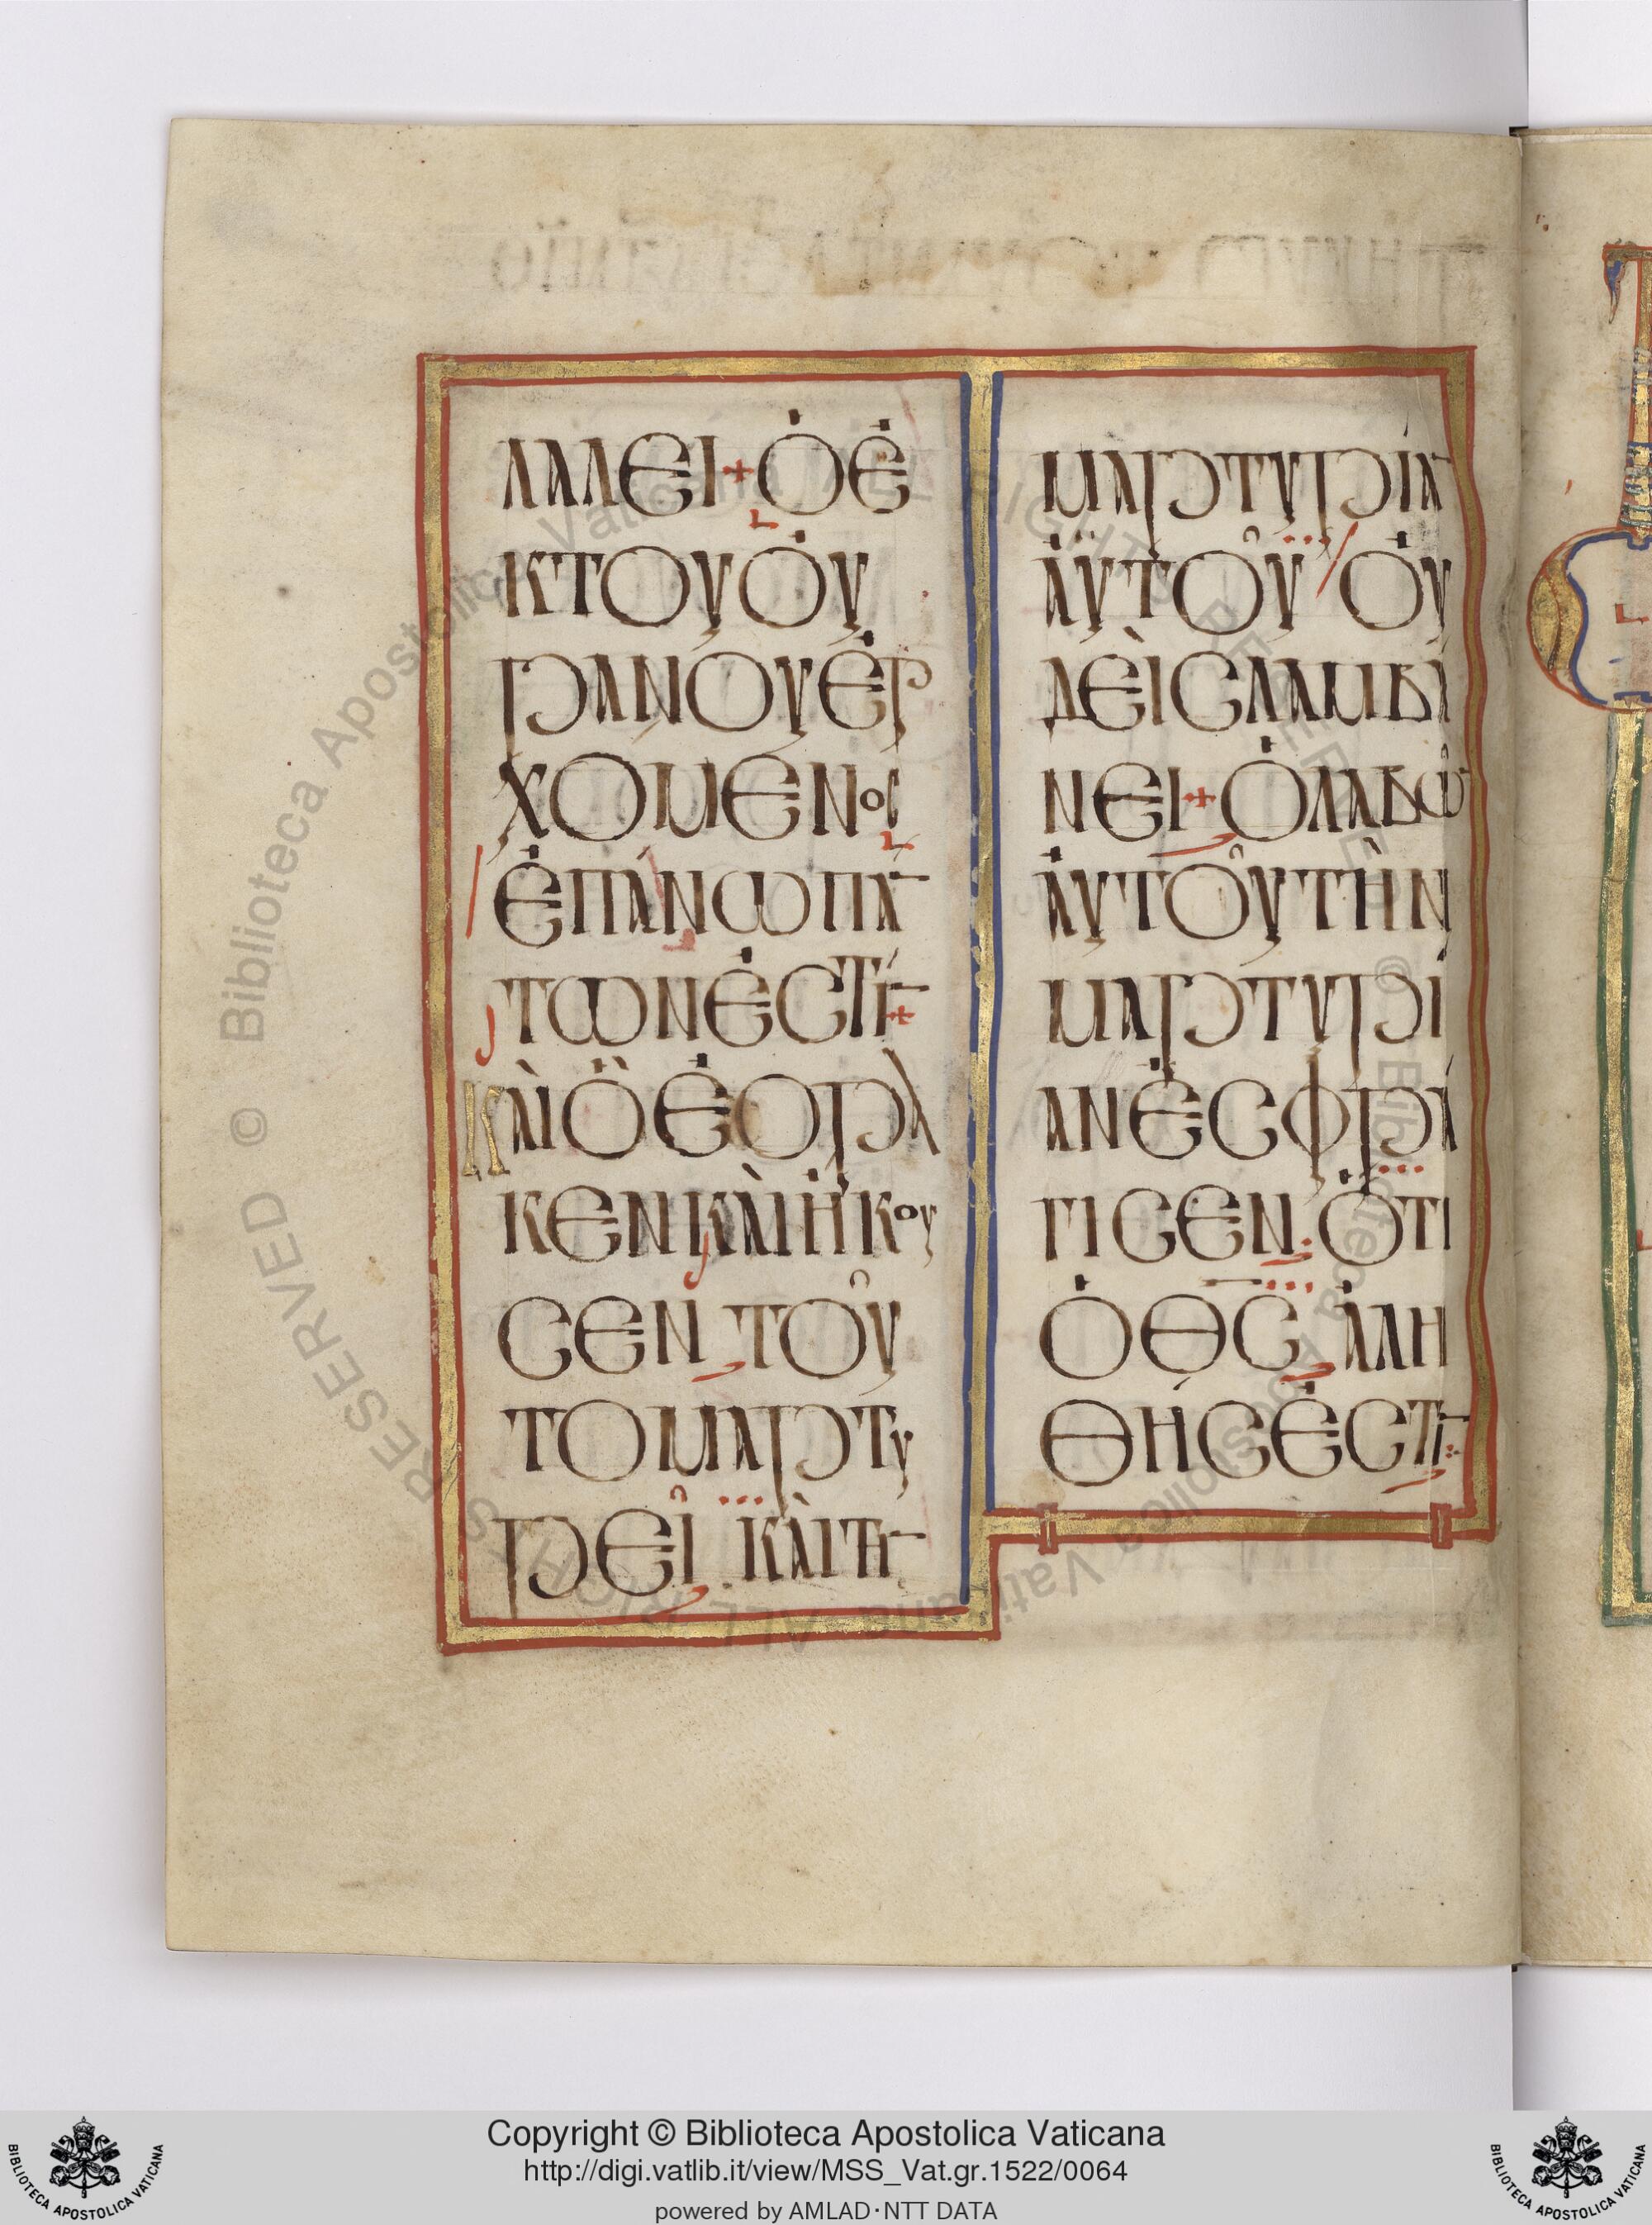 ΛΑΛΕΙ + Ὁ Ἐ
Κ ΤΟΥ ΟΥ
ΡΑΝΟΥ ἘΡ
ΧΟΜΕΝΟΣ
ἘΠΆΝΩ ΠΑ̅
ΤΩΝ ἘCΤΙ̅ +
ΚΑῚ Ὃ ἘΟΡΑ
ΚΕΝ ΚΑῚ ἨΚΟΥ
CΕΝ, ΤΟΥ͂
ΤΟ ΜΑΡΤΥ
ΡΕΙ͂ ΚΑῚ ΤΗ̅
ΜΑΡΤΥΡΊΑ̅
ἈΥΤΟΥ͂ ΟΥ
ΔΕῚC ΛΑΜΒΆ
ΝΕΙ + Ὁ ΛΑΒΩ̅
ἈΥΤΟΥ͂ ΤῊΝ
ΜΑΡΤΥΡΊ
ΑΝ ἘCΦΡΆ
ΓΙCΕΝ. ὍΤΙ
Ὁ Θ̅C̅ ἈΛΗ
ΘΉC ἘCΤΙ̅
Copyright © Biblioteca Apostolica Vaticana
http://digi.vatlib.it/view/MSS_Vat.gr.1522/0064
powered by AMLAD·NTT DATA
BIBLIOTECA APOSTOLICA VATICANA
BIBLIOTECA APOSTOLICA VATICANA